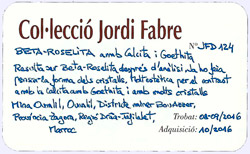 Col·lecció Jordi Fabre
Nº JFD124
BETA-ROSELITA amb Calcita i Goethita
Resulta ser Beta-Roselita després d'anàlisi, no ho feia
pensar la forma dels cristalls. Molt estètica per el contrast
amb la calcita amb Goethita i amb molts cristalls
Mina Oumlil, Oumlil, Districte miner Bou Azzer,
Província Zagora, Regió Drâa-Tafilalet,
Marroc
Trobat: 08-09/2016
Adquisició: 10/2016